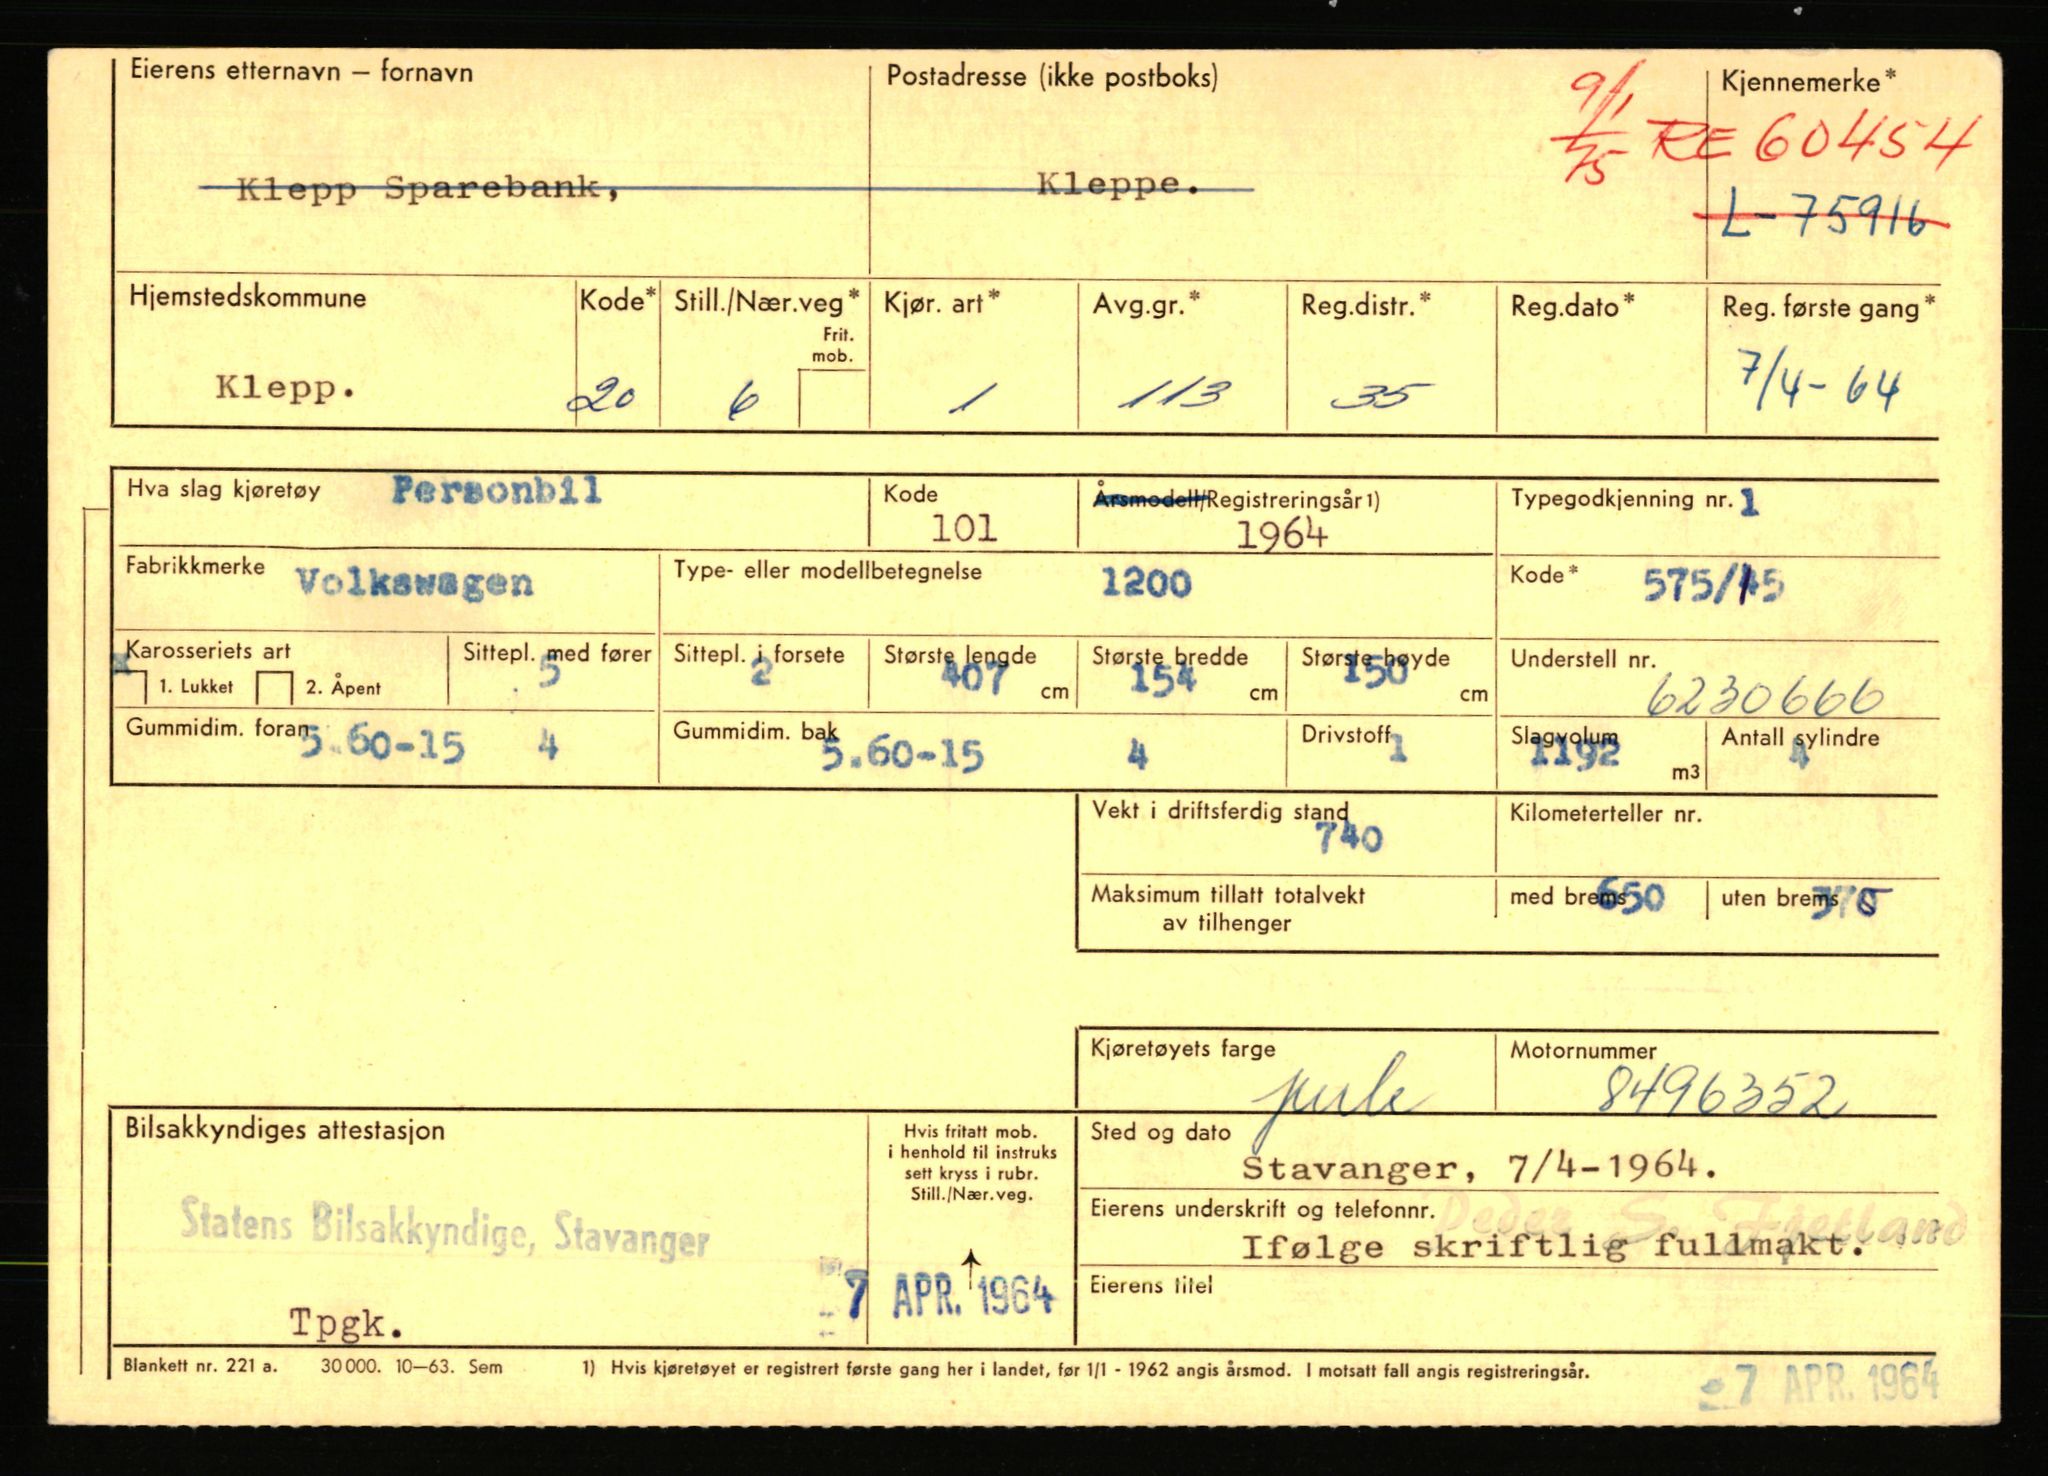 Eierens etternavn – fornavn
Postadresse (ikke postboks)
9/1
75
Kjennemerke*
RE 60454
Klepp Sparebank,
Kleppe.
L-75916
Hjemstedskommune
Kode*
Still./Nær.veg*
Frit.
mob.
Kjør. art*
Avg.gr.*
Reg.distr.*
Reg.dato*
Reg. første gang*
Klepp.
20
6
1
113
35
7/4-64
Hva slag kjøretøy
Personbil
Kode
101
Årsmodell/Registreringsår 1)
1964
Typegodkjenning nr. 1
Fabrikkmerke
Volkswagen
Type- eller modellbetegnelse
1200
Kode*
575/15
Karosseriets art
x
1. Lukket
2. Åpent
Sittepl. med fører
5
Sittepl. i forsete
2
Største lengde
407 cm
Største bredde
154 cm
Største høyde
150 cm
Understell nr.
6230666
Gummidim. foran
5.60-15 4
Gummidim. bak
5.60-15 4
Drivstoff
1
Slagvolum
1192 m3
Antall sylindre
4
Vekt i driftsferdig stand
740
Kilometerteller nr.
Maksimum tillatt totalvekt
av tilhenger
med brems 650
uten brems
Kjøretøyets farge
Motornummer
8496352
Bilsakkyndiges attestasjon
Hvis fritatt mob.
i henhold til instruks
sett kryss i rubr.
Still./Nær.veg.
Sted og dato
Stavanger, 7/4-1964.
Statens Bilsakkyndige, Stavanger
Eierens underskrift og telefonnr.
Peder S. Fjetland
Ifølge skriftlig fullmakt.
7 APR. 1964
Eierens titel
Tpgk.
Blankett nr. 221 a. 30000. 10–63. Sem
1) Hvis kjøretøyet er registrert første gang her i landet, før 1/1 - 1962 angis årsmod. I motsatt fall angis registreringsår.
-7 APR. 1964